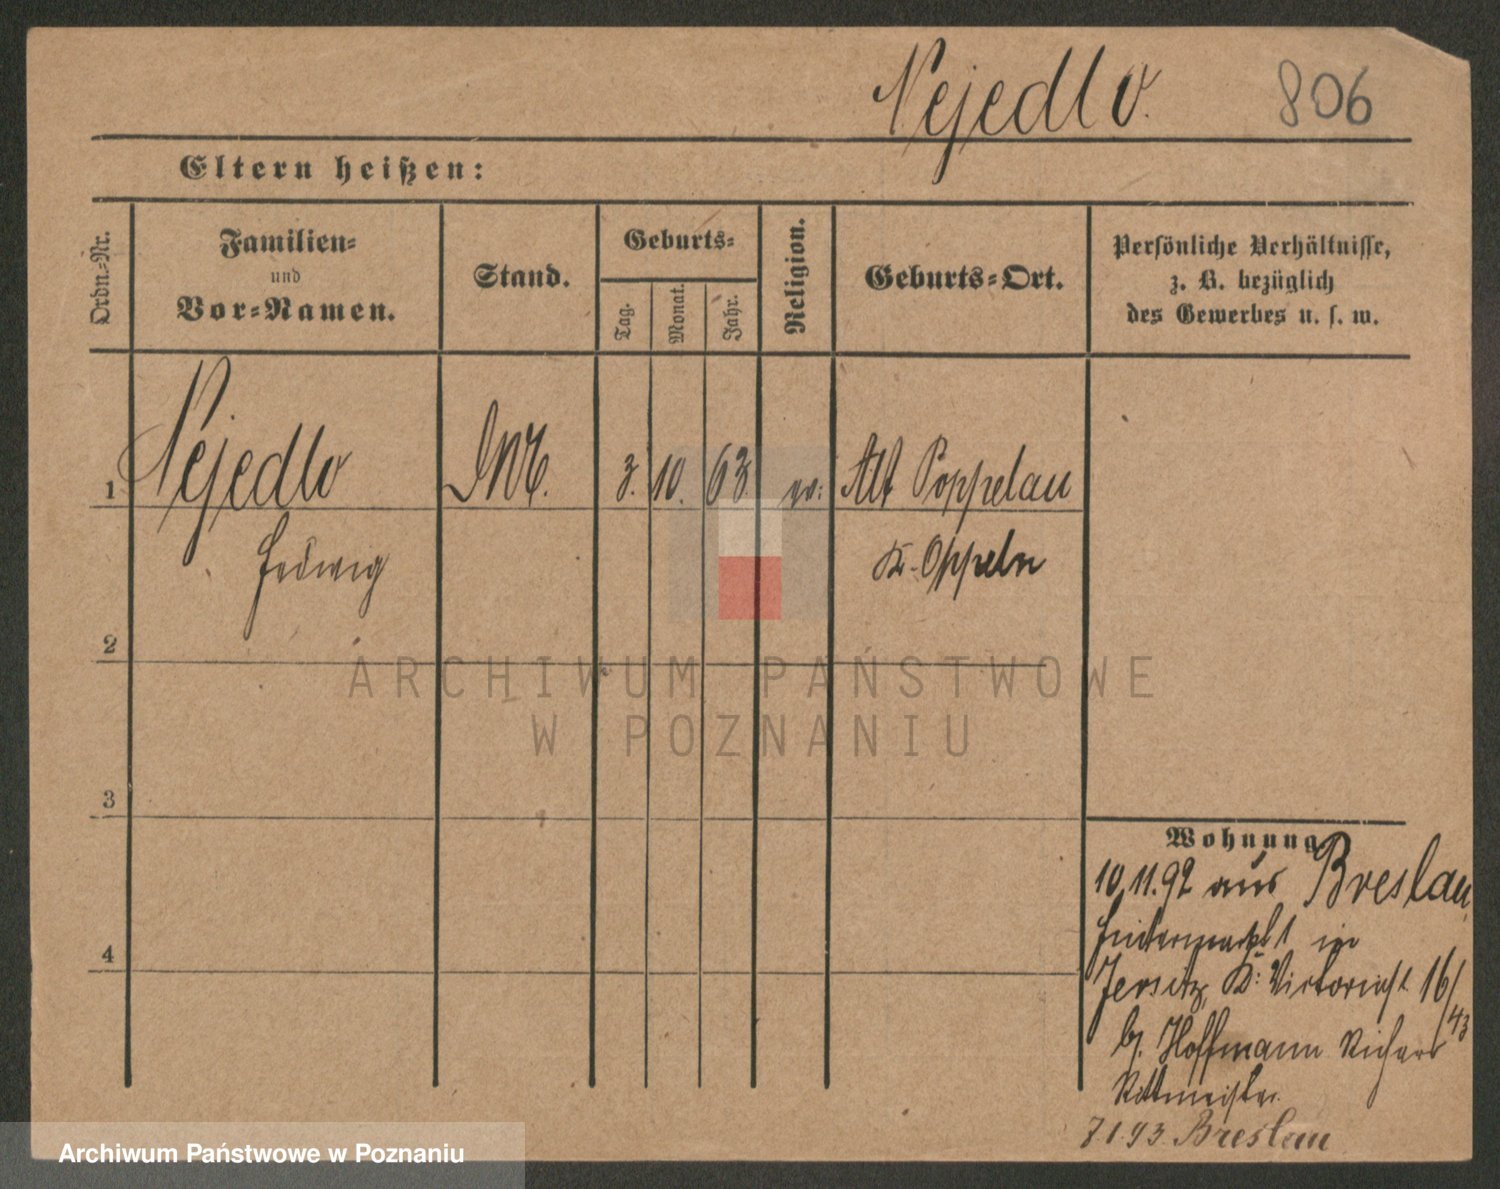 Nejedlo. 806
Eltern heißen:
Ordn.-Nr.
Familien-
und
Vor-Namen.
Stand.
Geburts-
Tag.
Monat.
Jahr.
Religion.
Geburts-Ort.
Persönliche Verhältnisse,
z. B. bezüglich
des Gewerbes u. s. w.
1 Nejedlo 3. 10. 63. Alt Poppelau
Hedwig K. Oppeln
2
3
4
Wohnung
10.11.92 aus Breslau,
in
Jersitz, K: 16/43
b. Hoffmann Richard
Rittmeister.
7 1.93. Breslau
ARCHIWUM PAŃSTWOWE
W POZNANIU
Archiwum Państwowe w Poznaniu